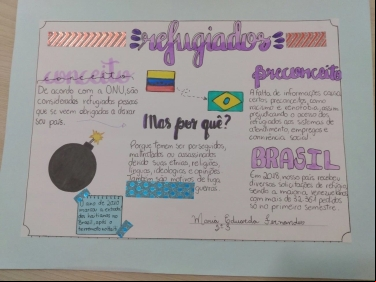 refugiados
conceito
De acordo com a ONU, são
consideradas refugiadas pessoas
que se veem obrigadas a deixar
seu país.
Mas por quê?
Porque temem ser perseguidos,
maltratados ou assassinados
devido suas etnias, religiões,
línguas, ideologias e opiniões.
Também são motivos de fuga
guerras.
O ano de 2010
marcou a entrada
de haitianos no
Brasil, após o
terremoto
preconceito
A falta de informações causa
vários preconceitos, como
racismo e xenofobia, assim
prejudicando o acesso dos
refugiados aos sistemas de
atendimento, empregos e
convivência social.
BRASIL
Em 2018, nosso país recebeu
diversas solicitações de refúgio
sendo a maioria venezuelana
com mais de 32.
só no primeiro semestre.
Maria Eduarda Fernandes